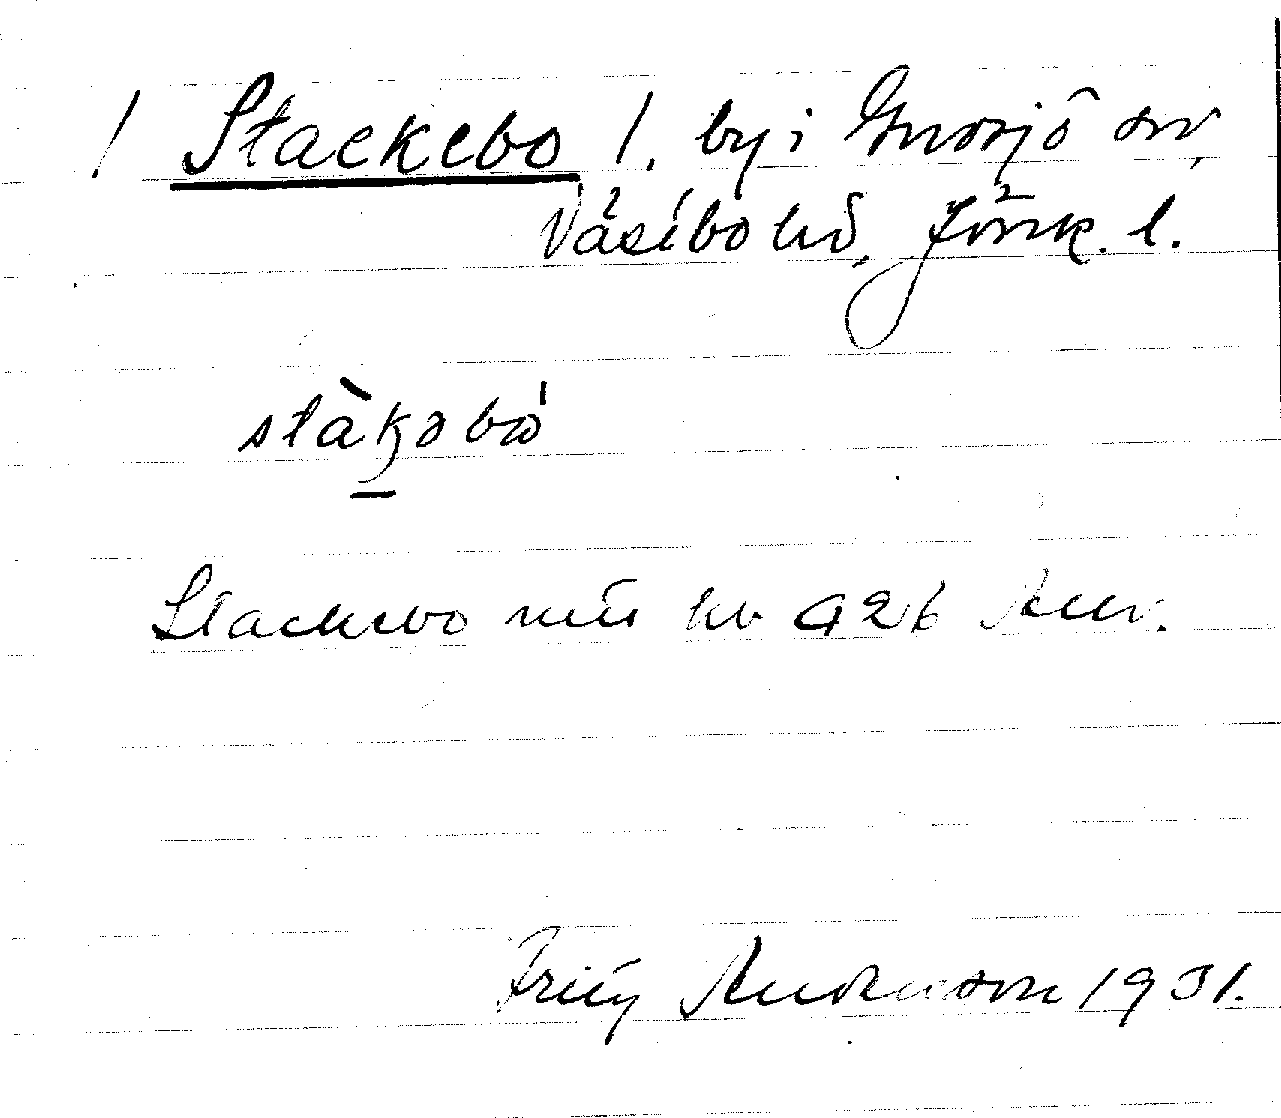 / Stackebo /, by i Gnosjö sn,
Västbo hd, Jönk. l.
stàkəbω'
Stackebo 426
Fritz Anderson 1931.